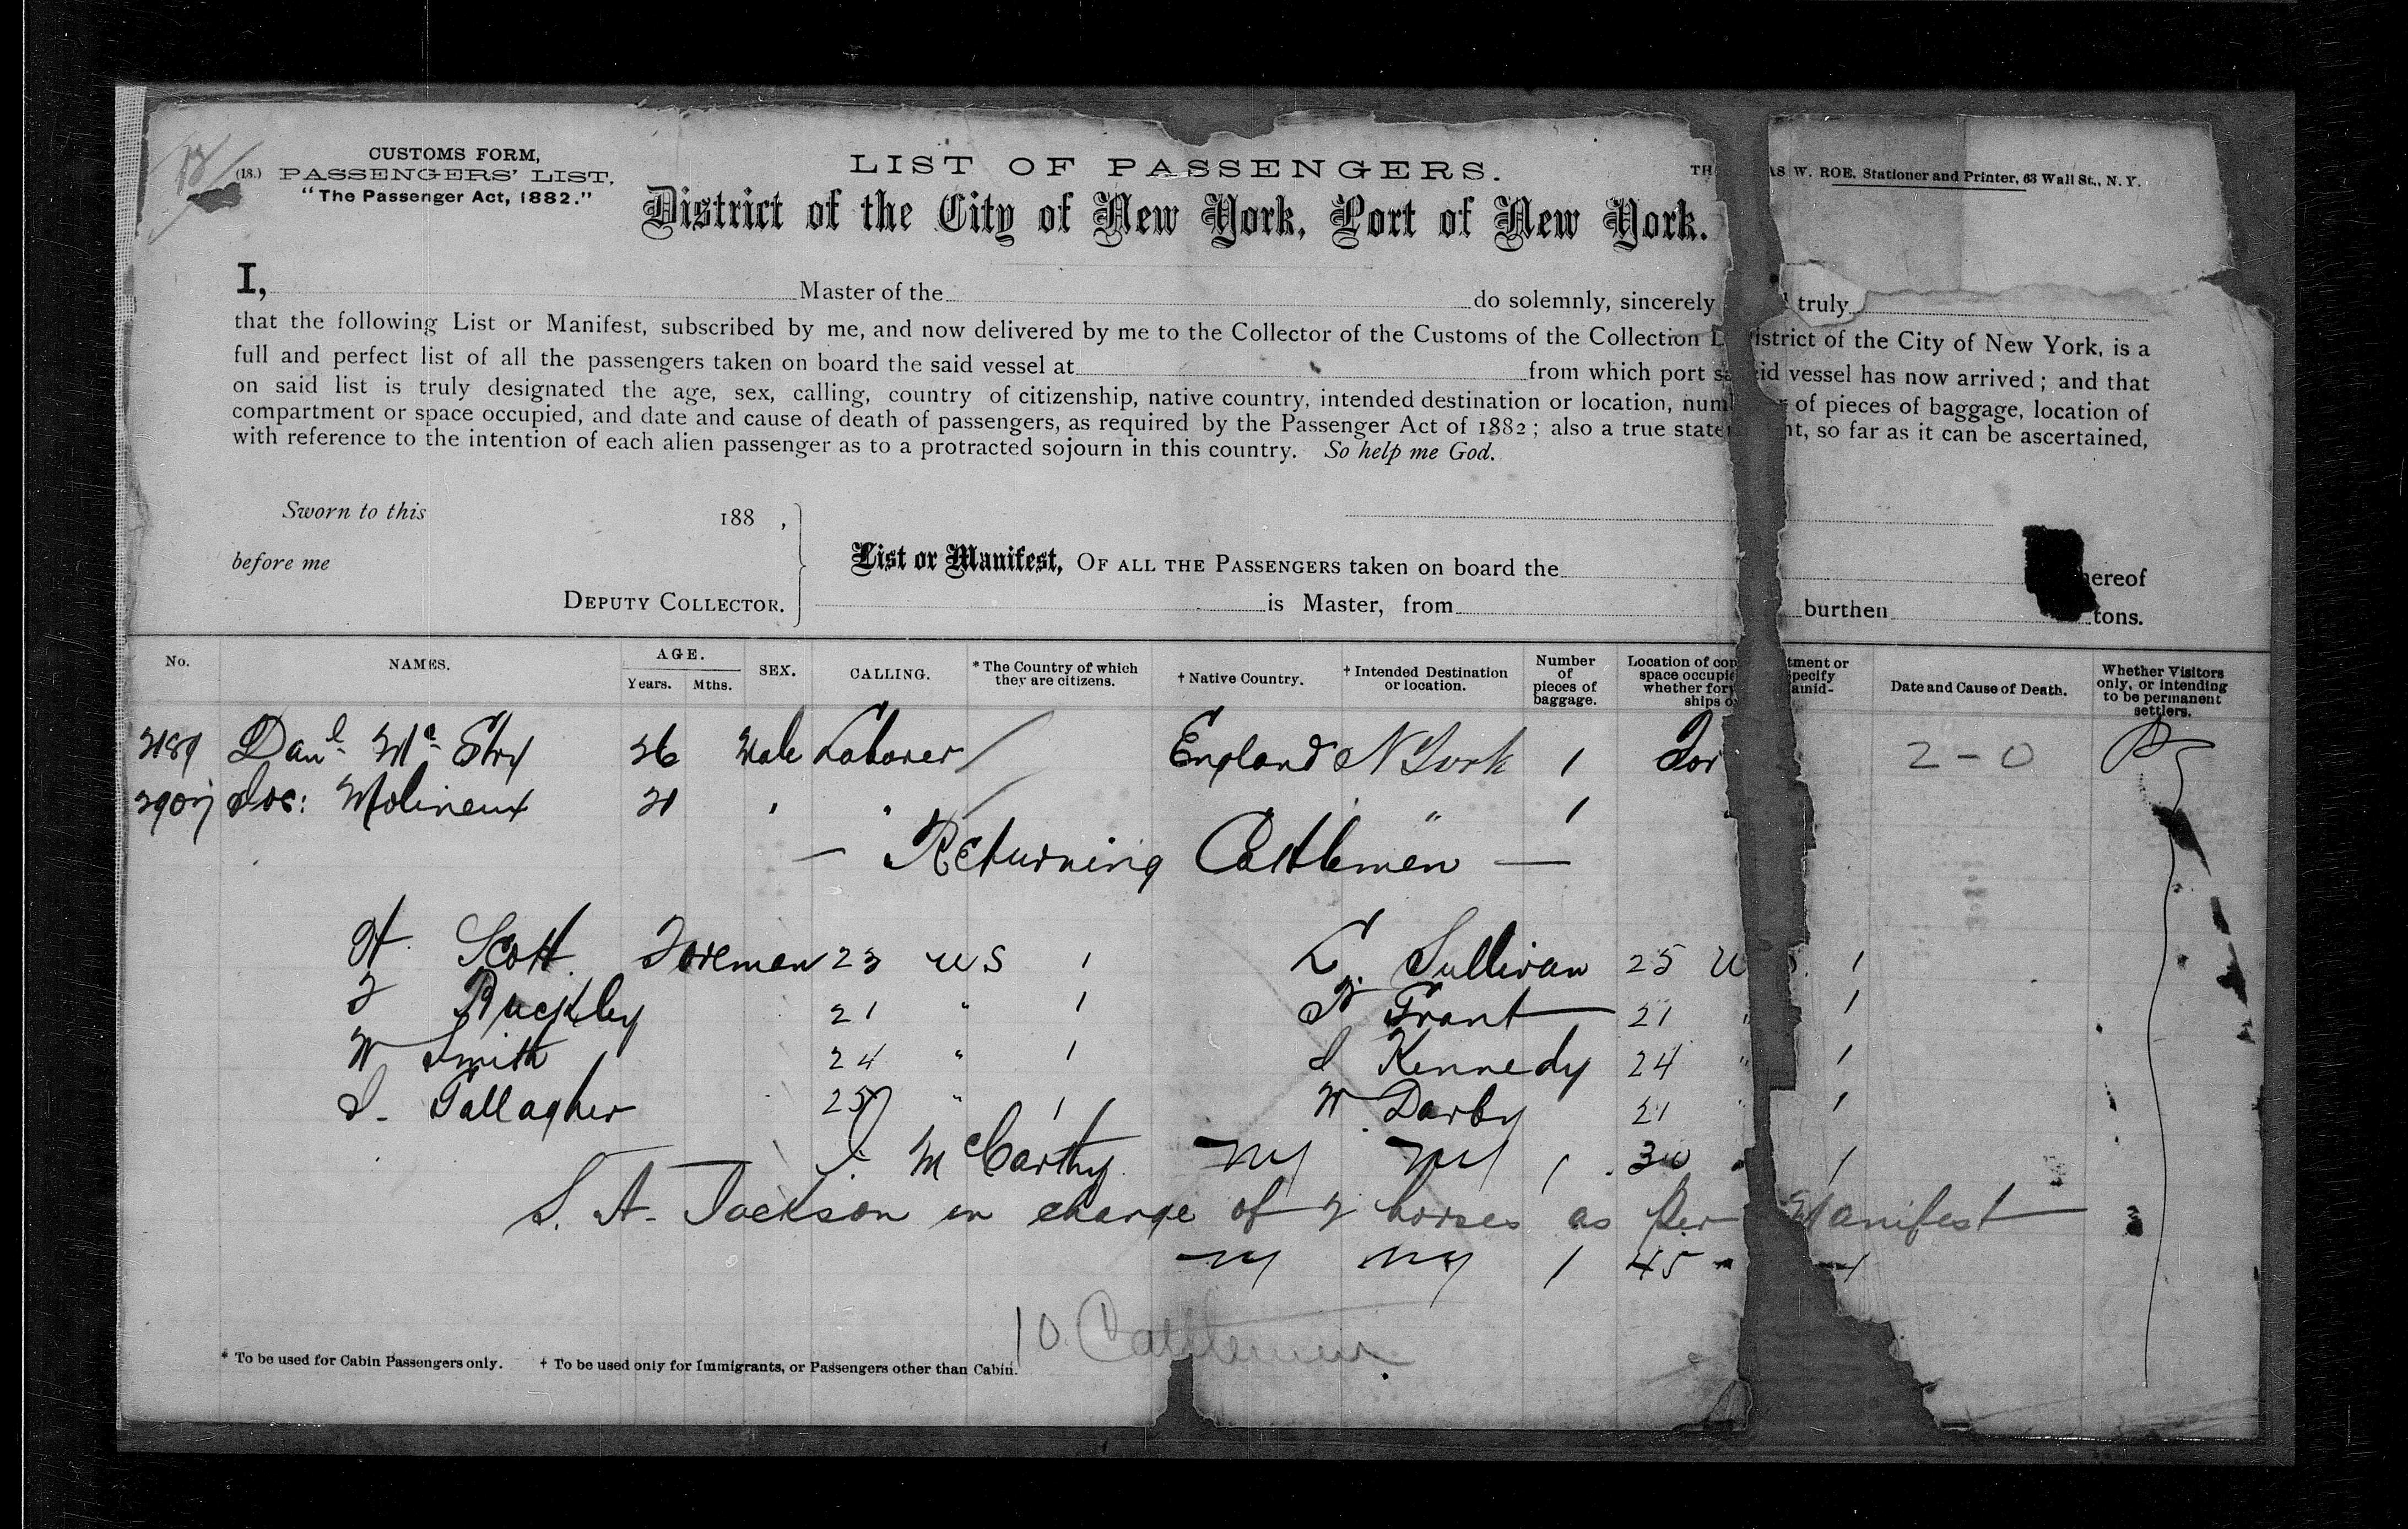 CUSTOMS FORM,
(18.) PASSENGERS' LIST.
"The Passenger Act, 1882."
LIST OF PASSENGERS.
TH AS W. ROE, Stationer and Printer, 63 Wall St., N. Y.
District of the City of New York, Port of New York.
I, Master of the do solemnly, sincerely truly
that the following List or Manifest, subscribed by me, and now delivered by me to the Collector of the Customs of the Collection District of the City of New York, is a
full and perfect list of all the passengers taken on board the said vessel at from which port said vessel has now arrived; and that
on said list is truly designated the age, sex, calling, country of citizenship, native country, intended destination or location, num of pieces of baggage, location of
compartment or space occupied, and date and cause of death of passengers, as required by the Passenger Act of 1882; also a true state nt, so far as it can be ascertained,
with reference to the intention of each alien passenger as to a protracted sojourn in this country. So help me God.
Sworn to this 188 ,
before me
DEPUTY COLLECTOR.
List or Manifest, OF ALL THE PASSENGERS taken on board the hereof
is Master, from burthen tons.
No. NAMES. AGE. Years. Mths. SEX. CALLING. * The Country of which they are citizens. † Native Country. † Intended Destination or location. Number of pieces of baggage. Location of com tment or space occupie pecify whether for amid- ships o Date and Cause of Death. Whether Visitors only, or intending to be permanent settlers.
Danl Mc 26 Male Laborer / England N York 1 2-0
Molineux 21 " " / " 1
— Returning Cattlemen —
H. Scott. Foreman 23 US 1 L. Sullivan 25 U S. 1
Buckley 21 " 1 Grant 21 " 1
W Smith 24 " 1 J Kennedy 24 " 1
J. Gallagher 25 " 1 W. Darby 21 " 1
J McCarthy NY NY 1 30 " 1
S. A. Jackson in charge of 2 horses as Per Manifest
NY NY 1 45 " 1
10 Cattlemen
* To be used for Cabin Passengers only. † To be used only for Immigrants, or Passengers other than Cabin.